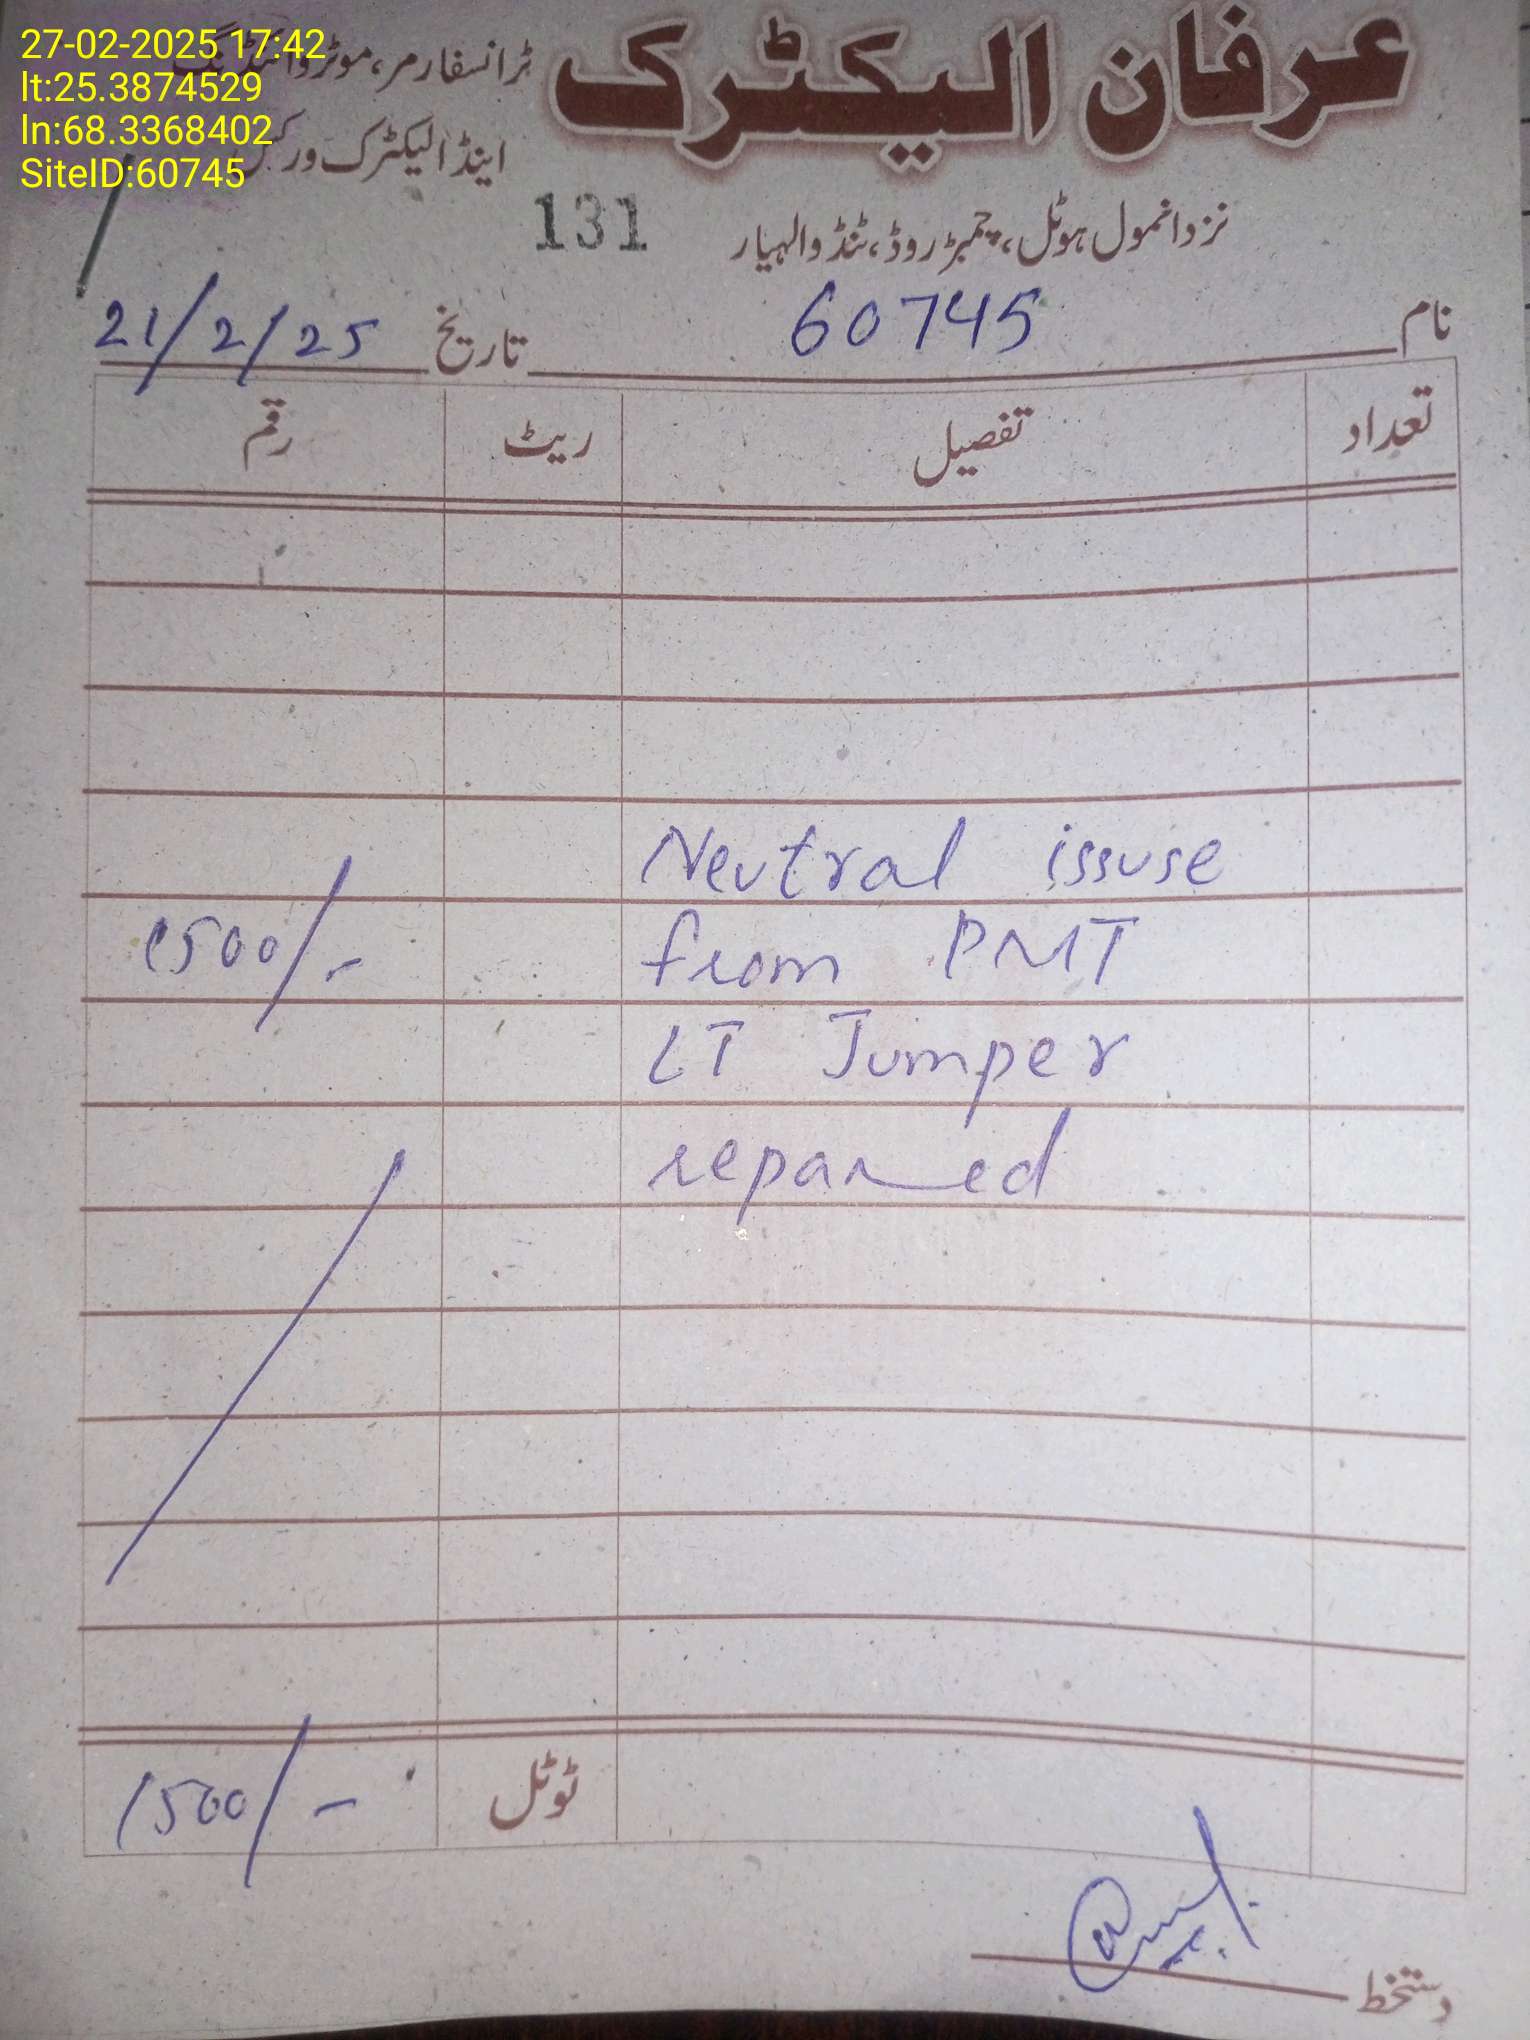 27-02-2025 17:42
lt:25.3874529
ln:68.3368402
SiteID:60745
عرفان الیکٹرک
ٹرانسفارمر، موٹر وائنڈنگ
اینڈ الیکٹرک ورکس
131
نزد انمول ہوٹل، چمبڑ روڈ، ٹنڈوالہیار
نام 60745 تاریخ 21/2/25
تعداد تفصیل ریٹ رقم
Neutral issuse
from PMT 1500/-
LT Jumper
repaired
ٹوٹل 1500/-
دستخط